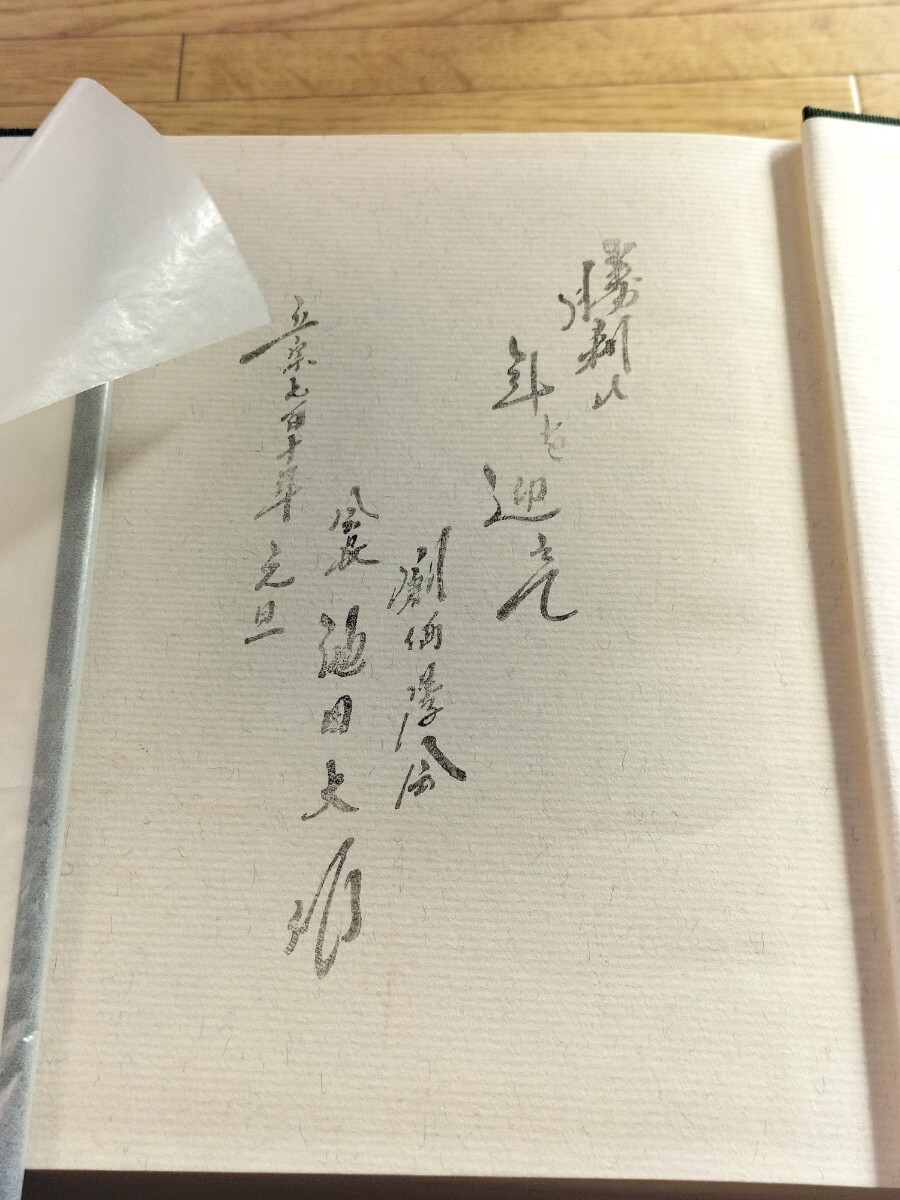 勝利の
年を迎えて
創価学会
会長 池田大作
立宗七百十年 元旦